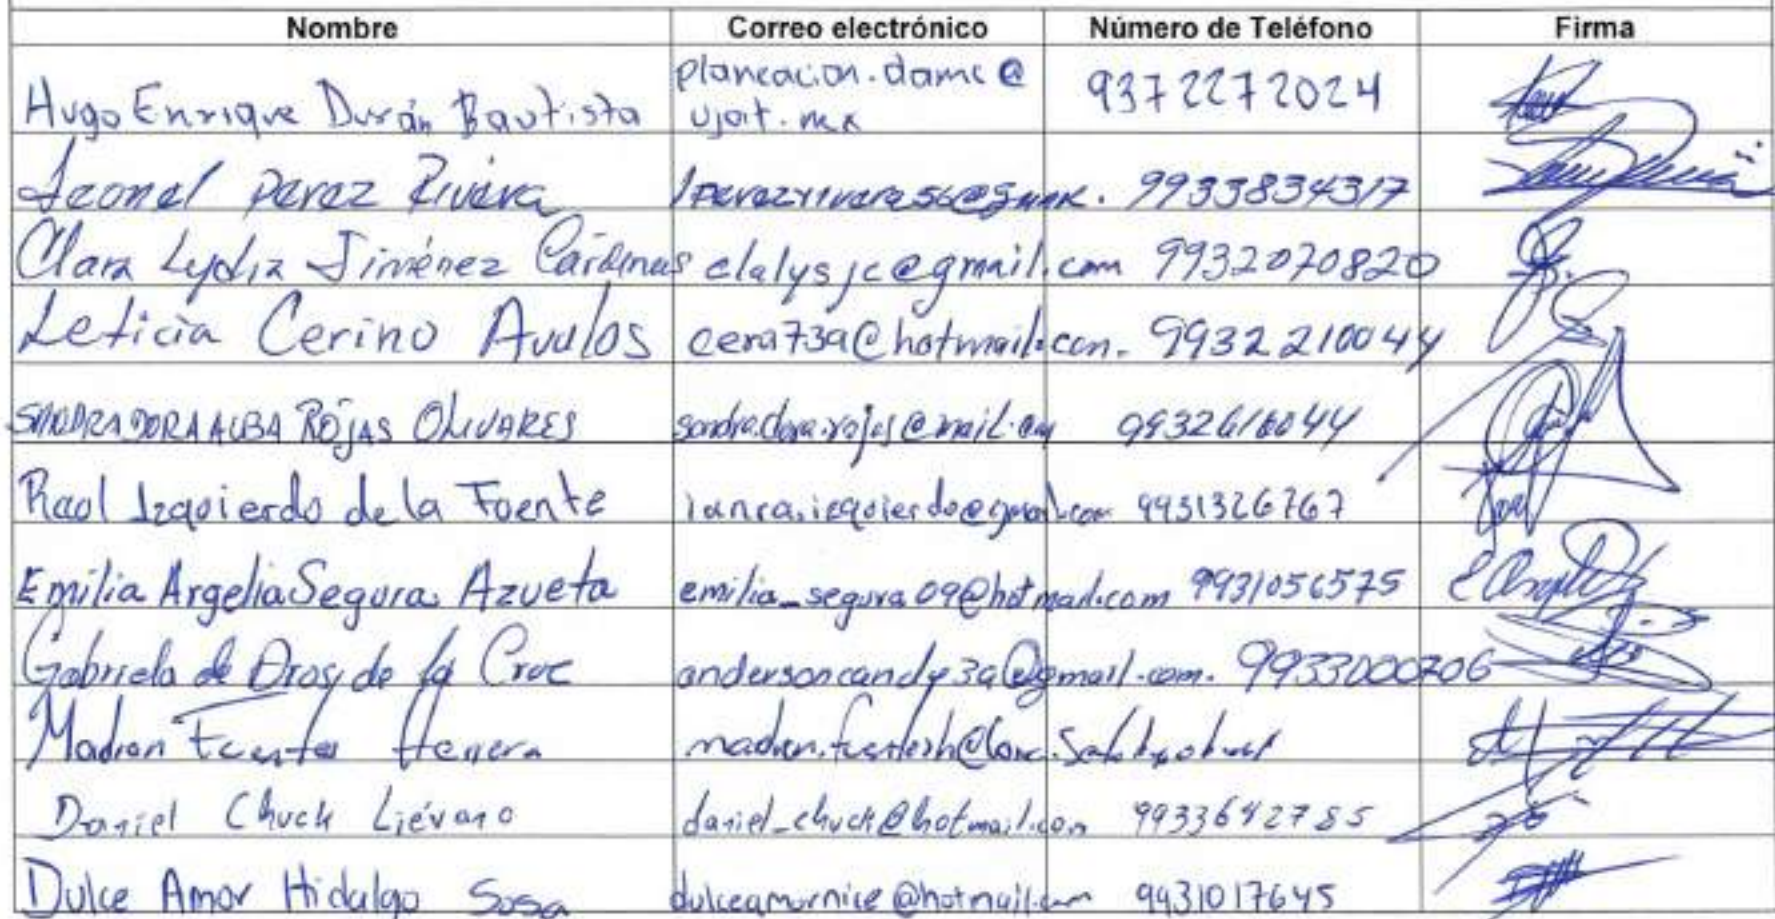 Nombre Correo electrónico Número de Teléfono Firma
planeacion.damc@
Hugo Enrique Durán Bautista ujat.mx 9372272024
Leonel perez Rivera 9933834317
Clara Lydia Jiménez Cárdenas clalysjc@gmail.com 9932070820
Leticia Cerino Avulos cera73a@hotmail.com. 9932210044
SANDRA DORA ALBA ROJAS OLIVARES sandra.dora.rojas@mail.com
Raol Izqoierdo de la Foente 9931326767
Emilia Argelia Segura Azueta emilia_segura09@hotmail.com 9931056575
Gabriela de Dios de la Cruz andersoncandy39@gmail.com. 9933000206
Madian Fuentes Herrera
Daniel Chuck Liévano daniel_chuck@hotmail.com 9933642785
Dulce Amor Hidalgo Sosa dulceamornice@hotmail.com 9931017645